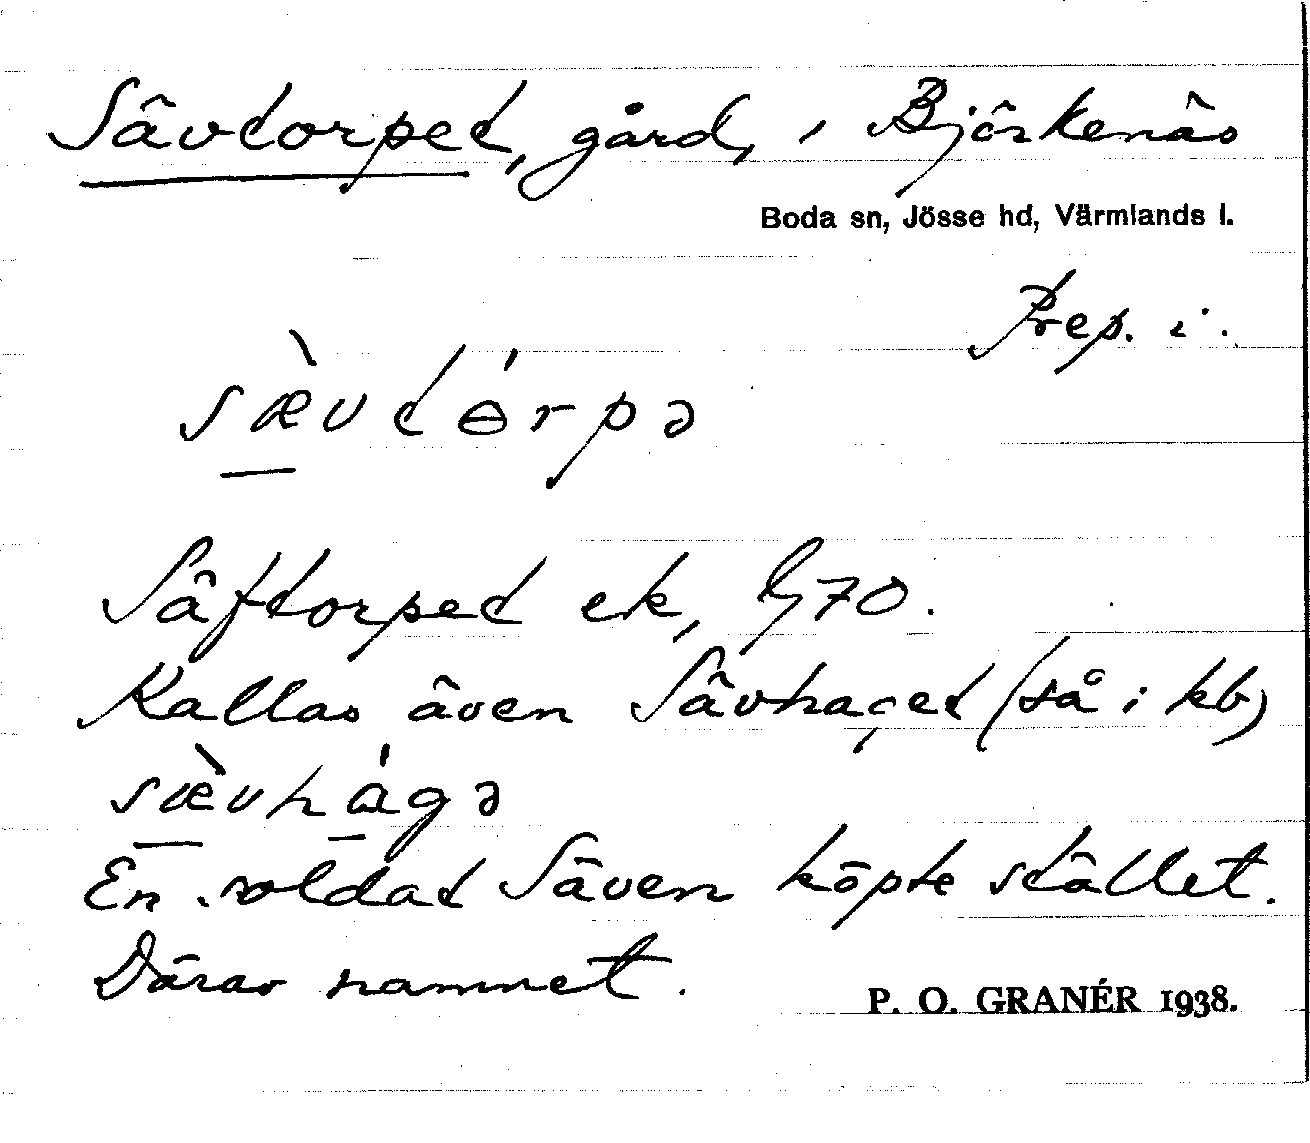 Sävtorpet, gård, i Björkenäs
Boda sn, Jösse hd, Värmlands l.
Prep. i.
sæ̀vtɵ́rpə
Säftorpet ek, G70.
Kallas även Sävhaget (så i kb)
sæ̀vhágə
En soldat Säven köpte stället.
Därav namnet.
P. O. GRANÉR 1938.